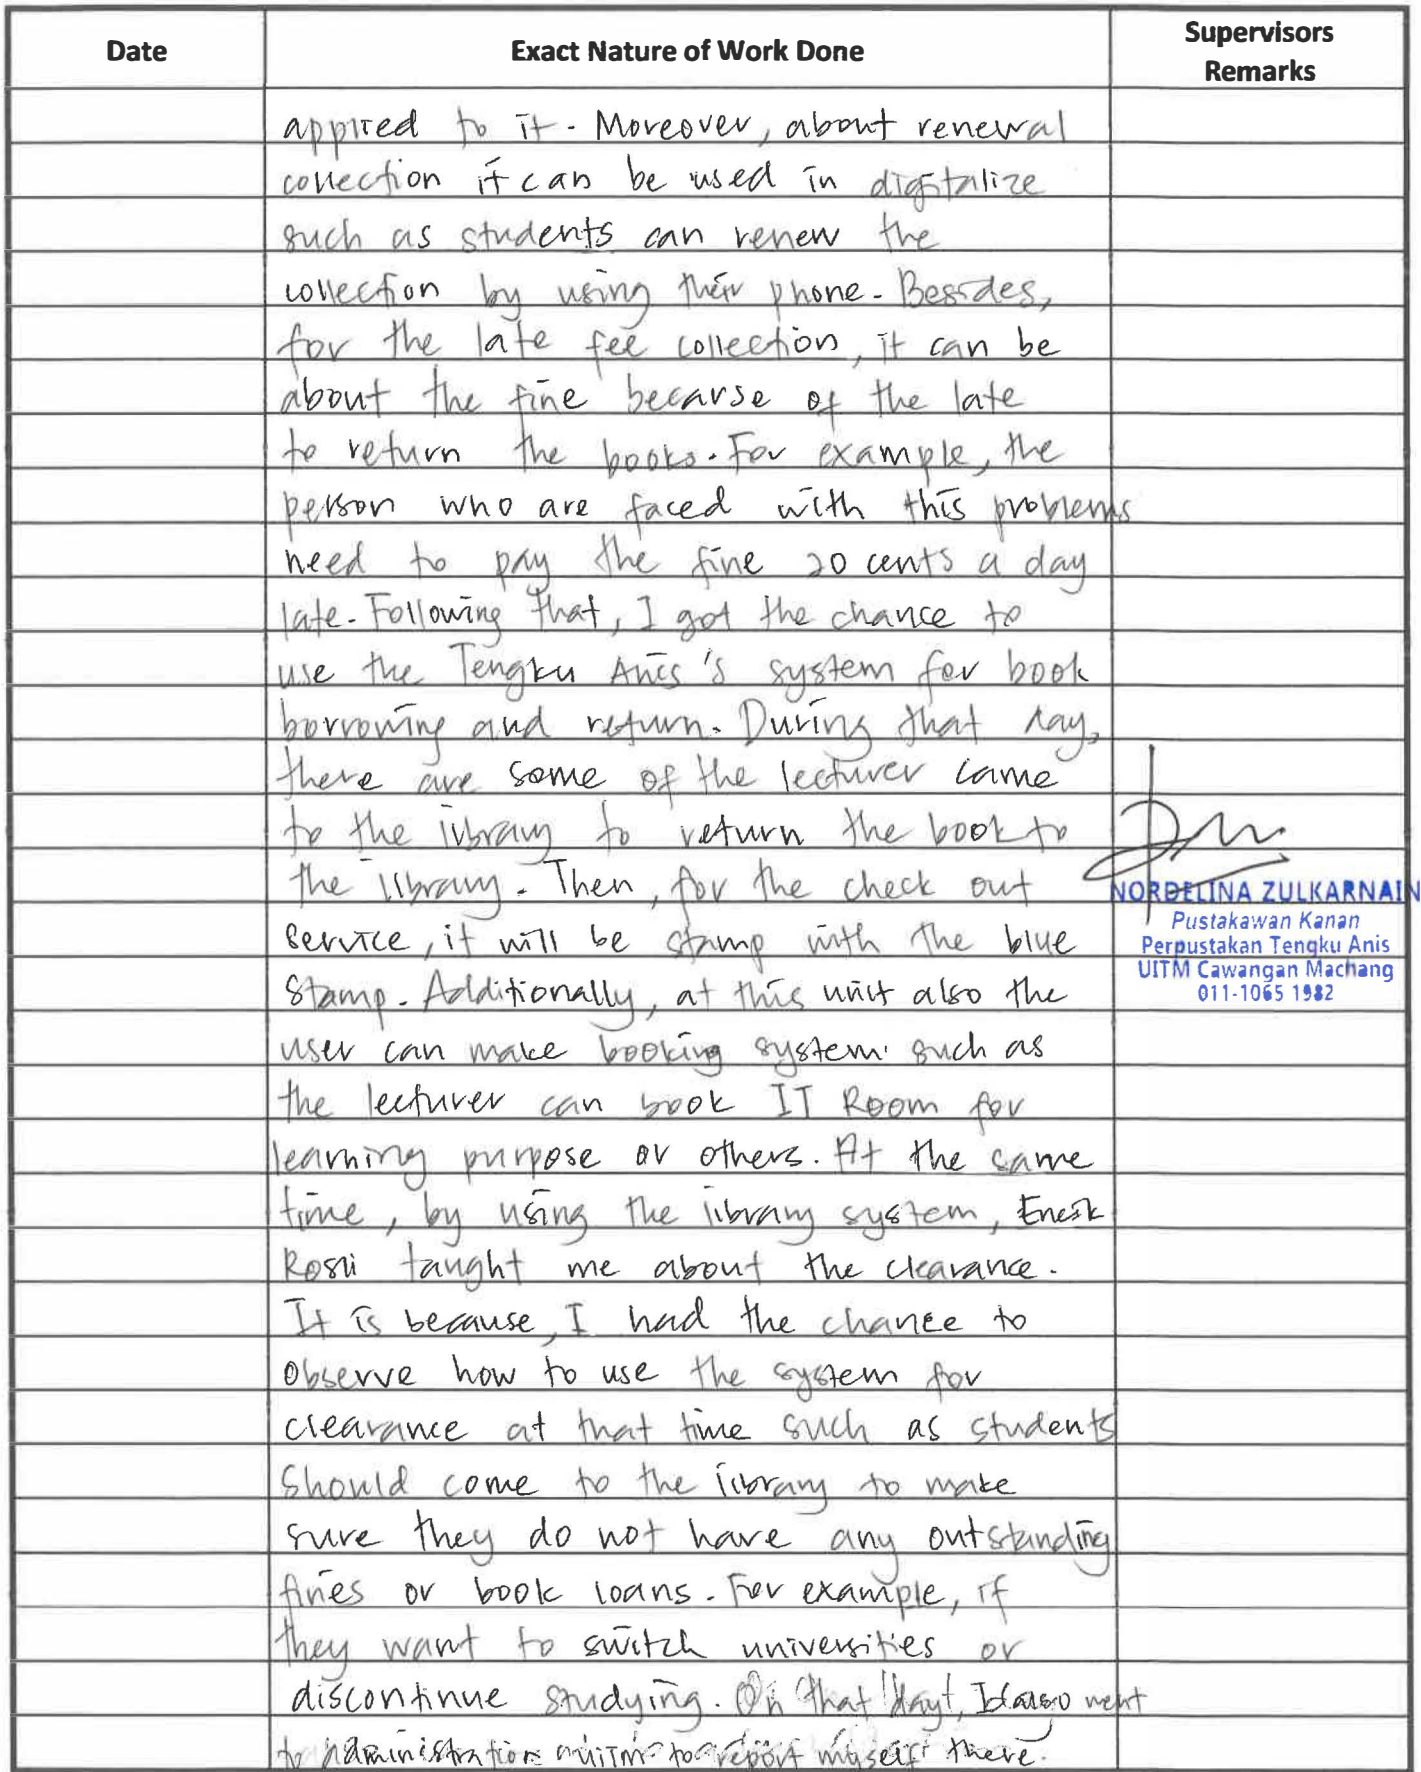 Date
Exact Nature of Work Done
Supervisors
Remarks
applied to it. Moreover, about renewal
collection it can be used in digitalize
such as students can renew the
collection by using their phone. Besides,
for the late fee collection, it can be
about the fine becarse of the late
to return the books. For example, the
person who are faced with this problems
need to pay the fine 20 cents a day
late. Following that, I got the chance to
use the Tengku Anis's system for book
borrowing and return. During that day,
there are some of the lecturer came
to the library to return the book to
the library. Then, for the check out
service, it will be stamp with the blue
stamp. Additionally, at this unit also the
user can make booking system such as
the lecturer can book IT Room for
learning purpose or others. At the same
time, by using the library system, Encik
Rosli taught me about the clearance.
It is because, I had the chance to
observe how to use the system for
clearance at that time such as students
should come to the library to make
sure they do not have any outstanding
fines or book loans. For example, if
they want to switch universities or
discontinue studying. On that day, I also went
to administration to report myself there.
NORDELINA ZULKARNAIN
Pustakawan Kanan
Perpustakan Tengku Anis
UITM Cawangan Machang
011-1065 1982